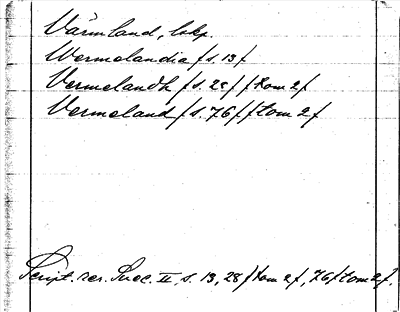 Värmland, lskp.
Wermelandia / s. 13 /
Vermelandh / s. 28 / / tom 2 /
Vermeland / s. 76 / / tom 2 /
Script. rer. Svec. II, s. 13, 28 / tom 2 /, 76 / tom 2 /.